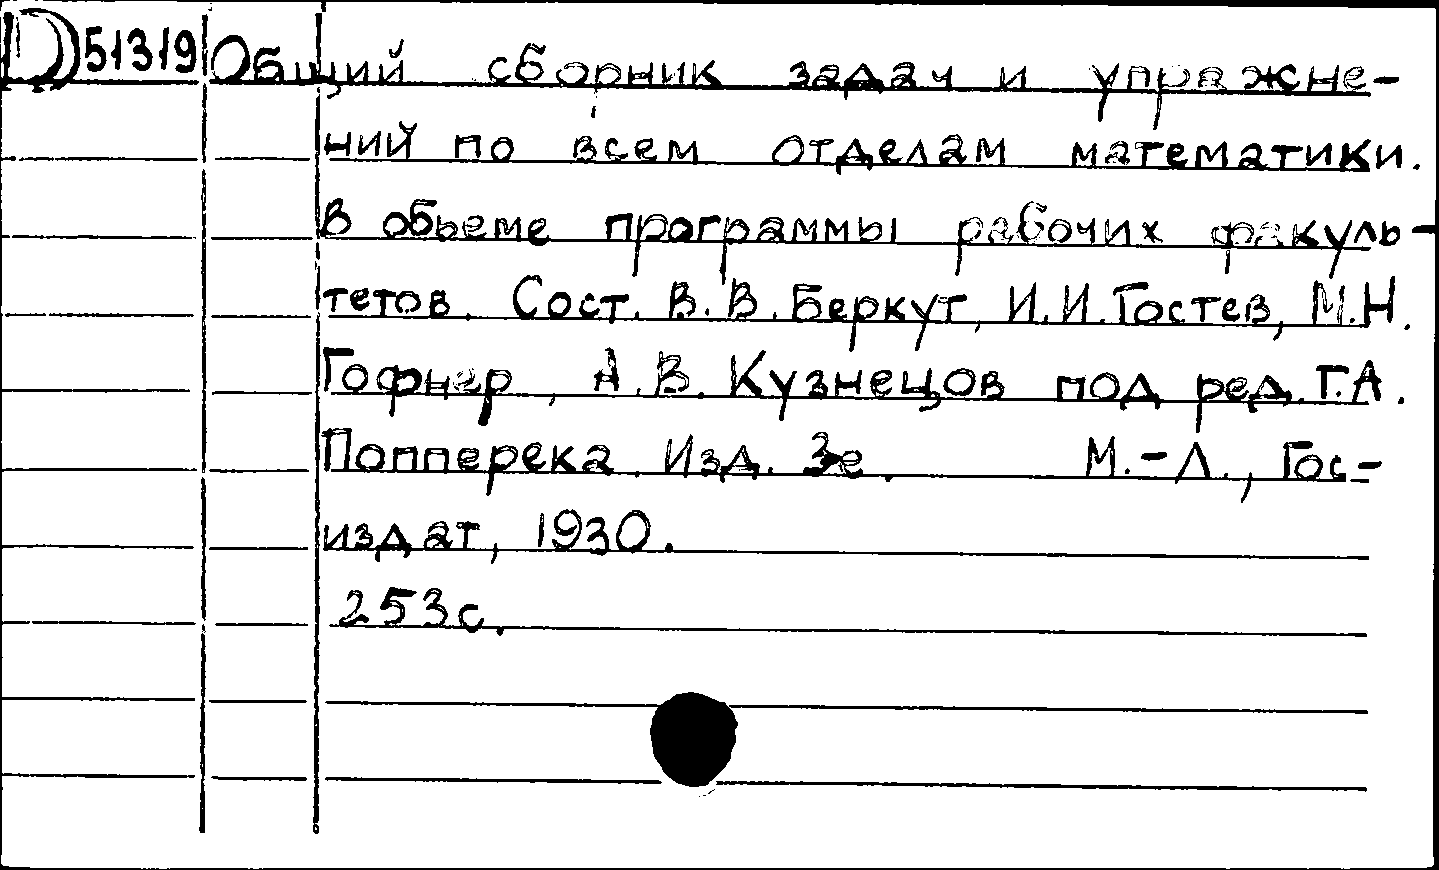 D 51319 Общий сборник задач и упражне-
ний по всем отделам математики.
В обьеме программы рабочих факуль-
тетов. Сост. В.В.Беркут, И.И.Гостев, М.Н.
Гофнер, А.В. Кузнецов под ред. Г.А.
Попперека. Изд. 3е. М.-Л., Гос-
издат, 1930.
253с.